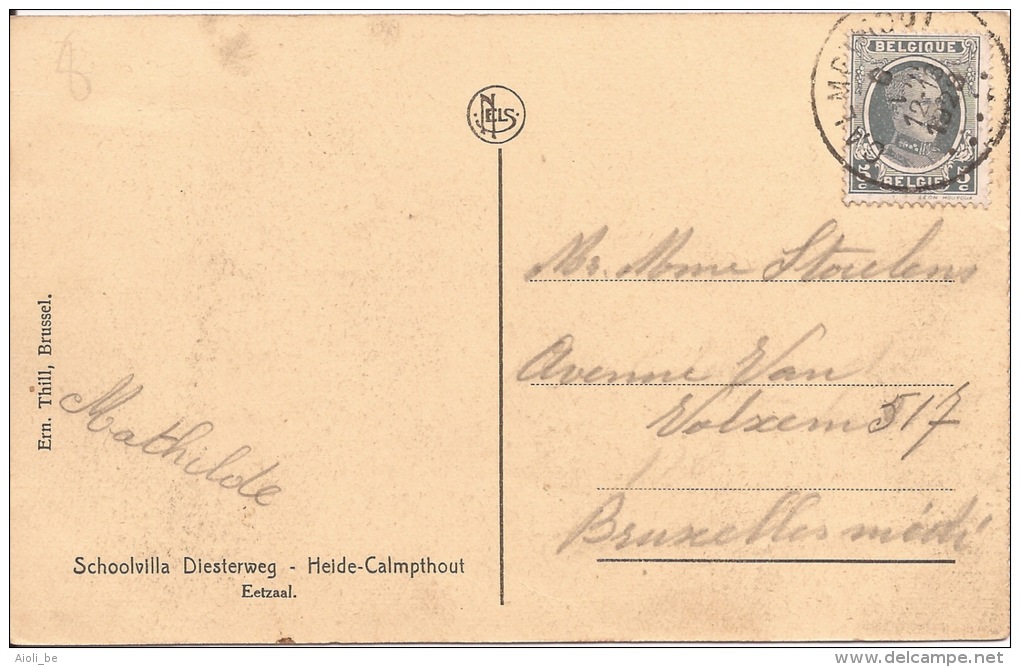 8
NELS
BELGIQUE
12-
192
5c
5c
BELGIE
Mr. Mme Stoelens
Avenue Van
Volxem 517
Bruxelles midi
Mathilde
Ern. Thill, Brussel.
Schoolvilla Diesterweg - Heide-Calmpthout
Eetzaal.
Aioli_be
www.delcampe.net